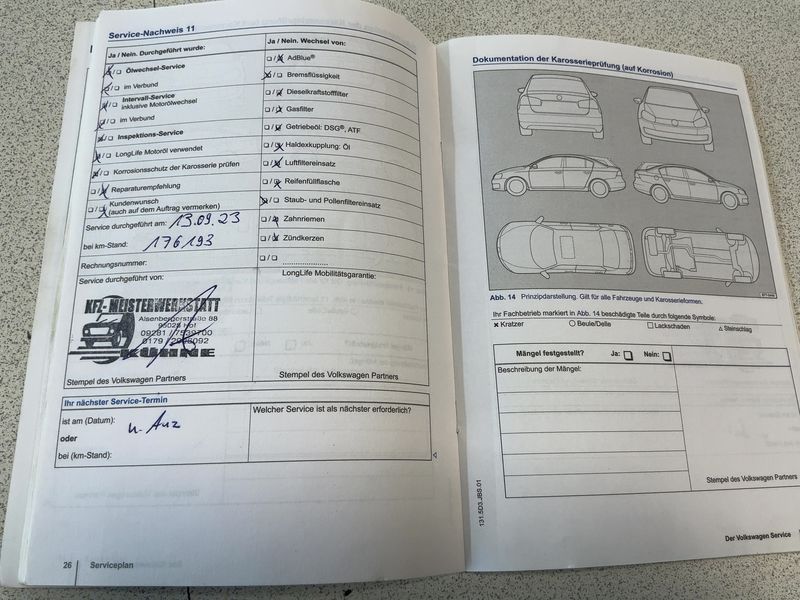 Service-Nachweis 11
Ja / Nein. Durchgeführt wurde:
Ölwechsel-Service
im Verbund
Intervall-Service
inklusive Motorölwechsel
im Verbund
Inspektions-Service
LongLife Motoröl verwendet
Korrosionsschutz der Karosserie prüfen
Reparaturempfehlung
Kundenwunsch
(auch auf dem Auftrag vermerken)
Service durchgeführt am: 13.09.23
bei km-Stand: 176193
Rechnungsnummer:
Service durchgeführt von:
KFZ-MEISTERWERKSTATT
Alsenbergerstraße 88
95028 Hof
09281 /
0179 /
KÜHNE
Stempel des Volkswagen Partners
Ja / Nein. Wechsel von:
AdBlue®
Bremsflüssigkeit
Dieselkraftstofffilter
Gasfilter
Getriebeöl: DSG®, ATF
Haldexkupplung: Öl
Luftfiltereinsatz
Reifenfüllflasche
Staub- und Pollenfiltereinsatz
Zahnriemen
Zündkerzen
LongLife Mobilitätsgarantie:
Stempel des Volkswagen Partners
Ihr nächster Service-Termin
ist am (Datum): n. Anz
oder
bei (km-Stand):
Welcher Service ist als nächster erforderlich?
26 Serviceplan
Dokumentation der Karosserieprüfung (auf Korrosion)
Abb. 14 Prinzipdarstellung. Gilt für alle Fahrzeuge und Karosserieformen.
Ihr Fachbetrieb markiert in Abb. 14 beschädigte Teile durch folgende Symbole:
Kratzer Beule/Delle Lackschaden Steinschlag
Mängel festgestellt? Ja: Nein:
Beschreibung der Mängel:
Stempel des Volkswagen Partners
131.5D3.JBS.01
Der Volkswagen Service